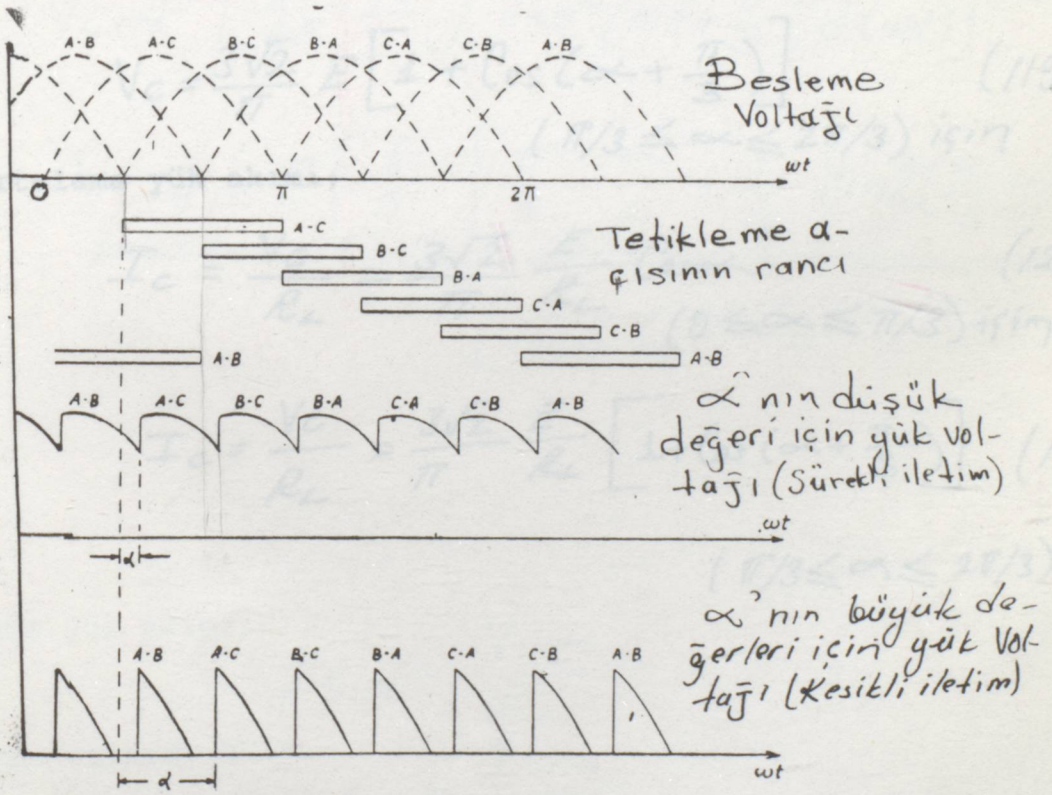 A-B A-C B-C B-A C-A C-B A-B
Besleme
Voltağı
O π 2π ωt
A-C
B-C
B-A
C-A
C-B
A-B A-B
Tetikleme a-
çısının rancı
A-B A-C B-C B-A C-A C-B A-B
α'nın düşük
değeri için yük vol-
tağı (Sürekli iletim)
ωt
α
α'nın büyük de-
ğerleri için yük Vol-
tağı (Kesikli iletim)
A-B A-C B-C B-A C-A C-B A-B
ωt
α